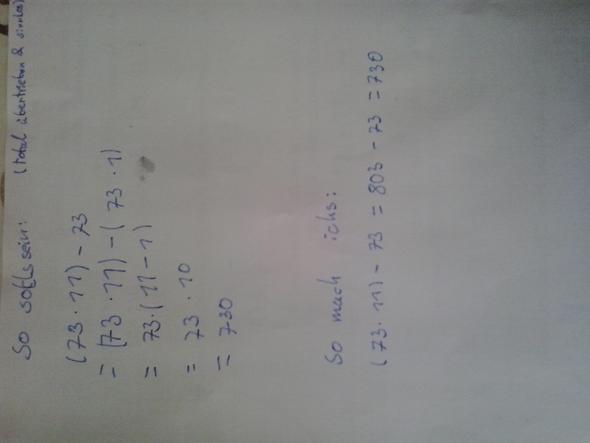 So solls sein: (total übertrieben & sinnlos)
(73 · 11) - 73
= (73 · 11) - (73 · 1)
= 73 · (11 - 1)
= 73 · 10
= 730
So mach ichs:
(73 · 11) - 73 = 803 - 73 = 730